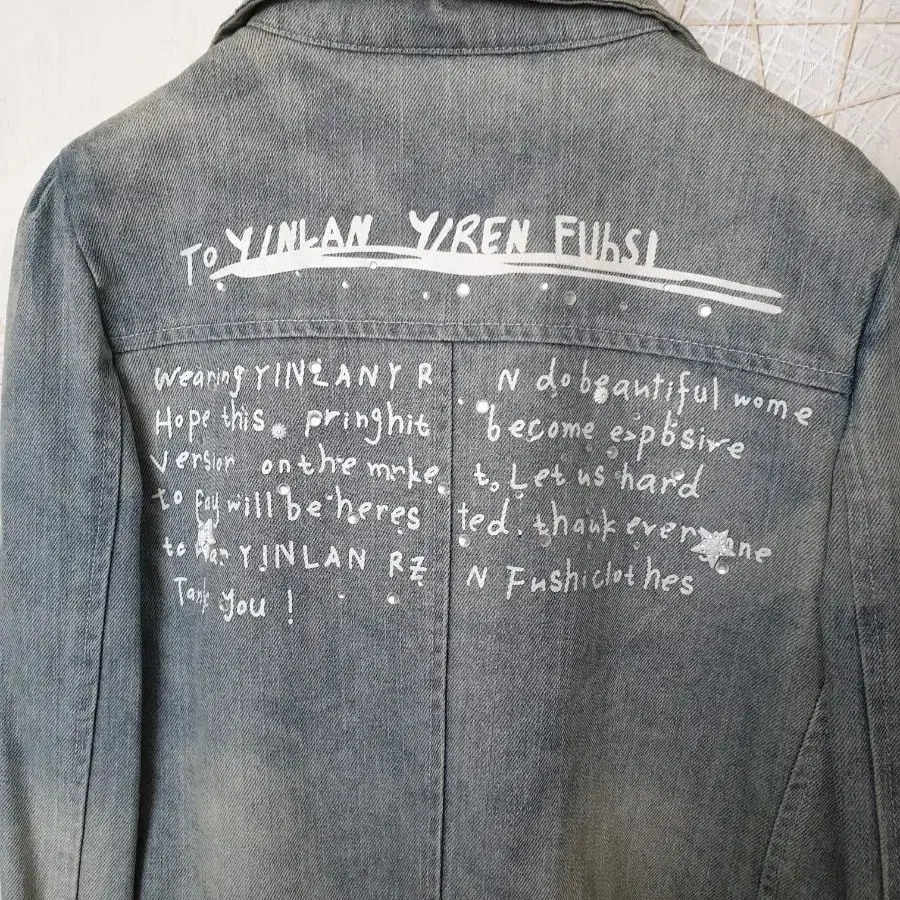 To YINLAN YIREN FUhSI
Wearing YINLANY R N do beautiful wome
Hope this pringhit become expbsire
version on the mrke t. Let us hard
to Pay will be heres ted. thank everyone
to YINLAN RZ N Fushiclothes
Tank you !